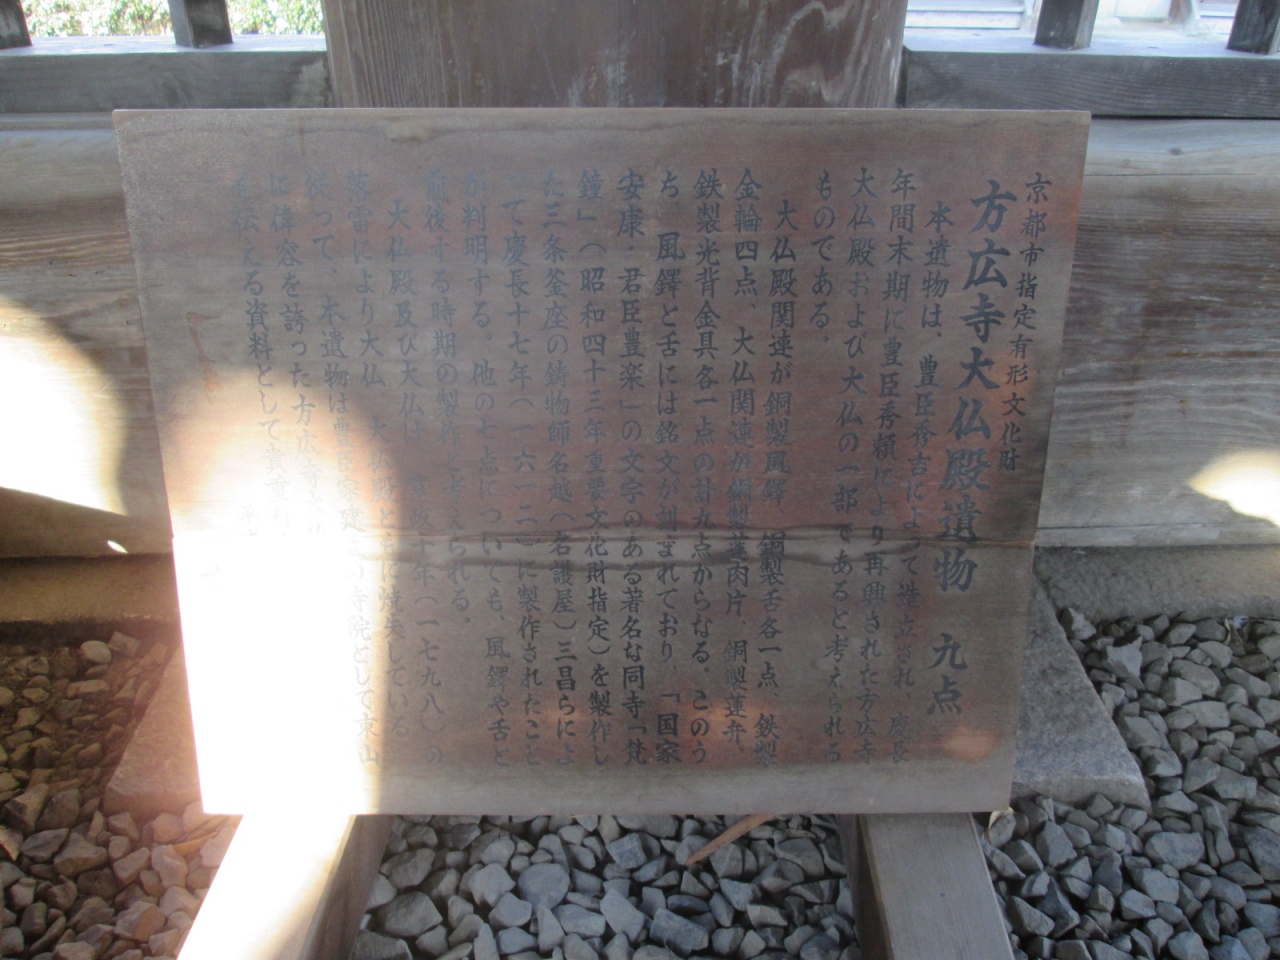 京都市指定有形文化財
方広寺大仏殿遺物 九点
本遺物は、豊臣秀吉によって造立され、慶長
年間末期に豊臣秀頼により再興された方広寺
大仏殿および大仏の一部であると考えられる
ものである。
大仏殿関連が銅製風鐸、銅製舌各一点、鉄製
金輪四点、大仏関連が銅製蓮肉片、銅製蓮弁、
鉄製光背金具各一点の計九点からなる。このう
ち、風鐸と舌には銘文が刻まれており、「国家
安康・君臣豊楽」の文字のある著名な同寺「梵
鐘」（昭和四十三年重要文化財指定）を製作し
た三条釜座の鋳物師名越（名護屋）三昌らによ
って慶長十七年（一六一二）に製作されたこと
が判明する。他の七点についても、風鐸や舌と
前後する時期の製作と考えられる。
大仏殿及び大仏は、寛政十年（一七九八）の
落雷により大仏、大仏殿ともに焼失している。
従って、本遺物は豊臣家建 の寺院として東山
に偉容を誇った方広寺
を伝える資料として貴重